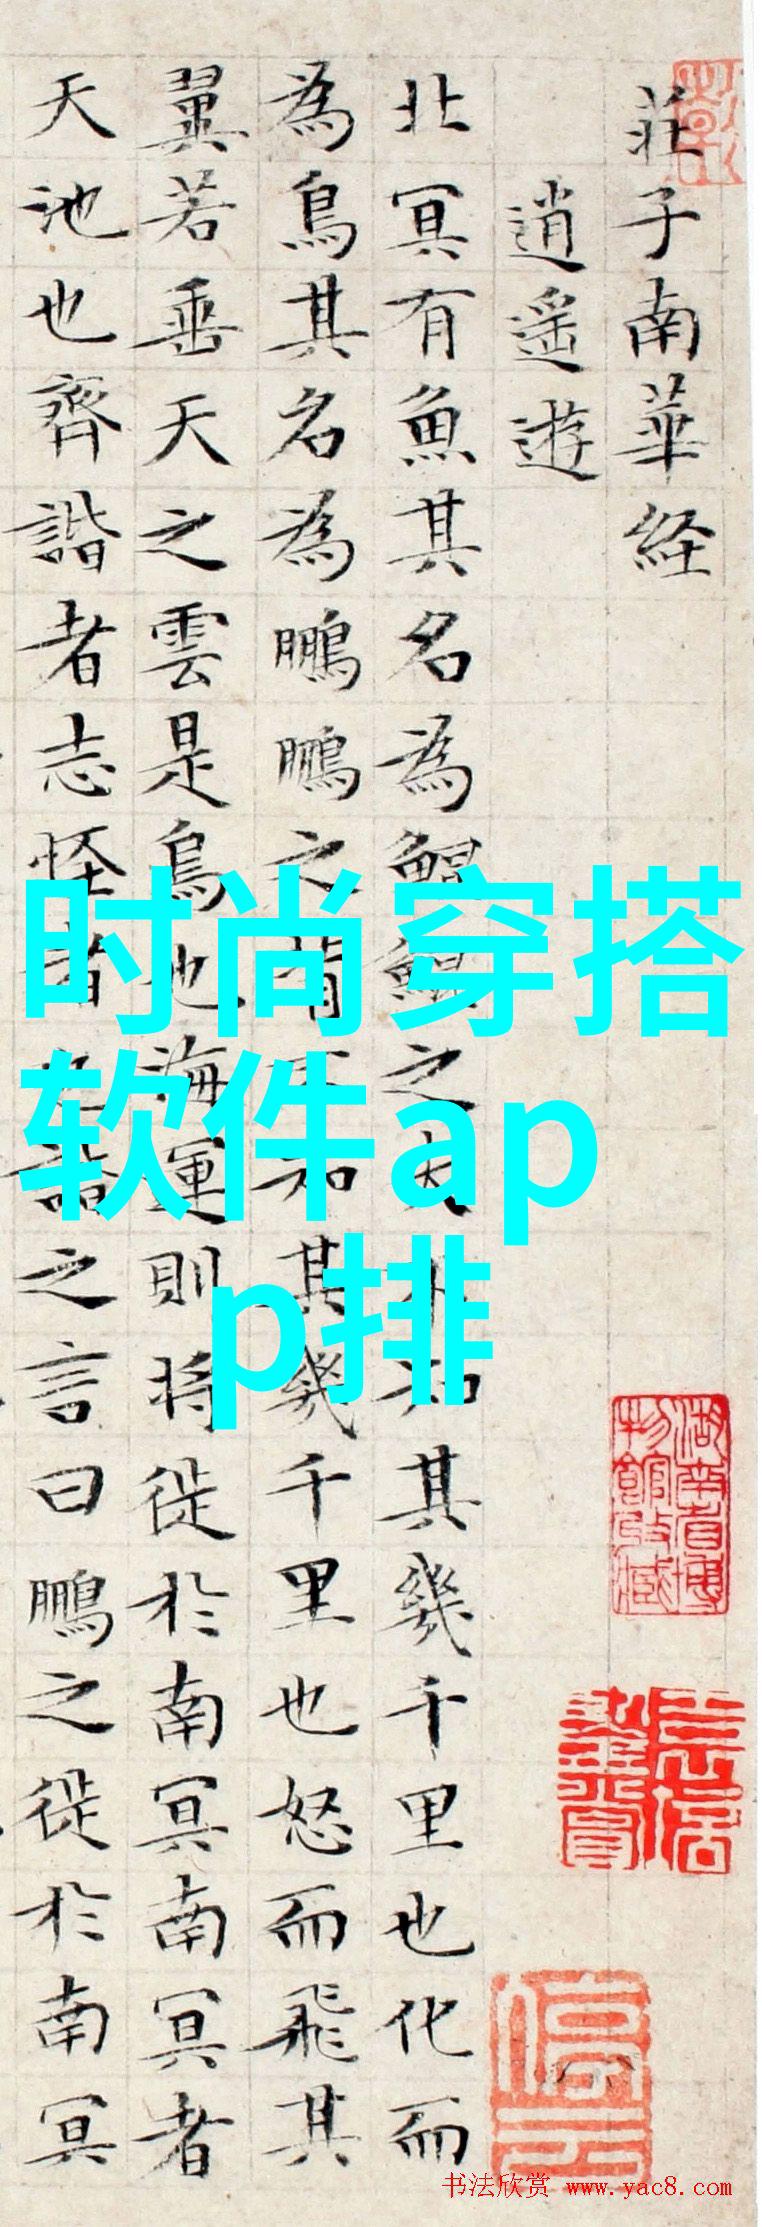 莊子南華経
逍遙遊
北冥有魚其名為鯤鯤之大不知其幾千里也化而
為鳥其名為鵬鵬之背不知其幾千里也怒而飛其
翼若垂天之雲是鳥也海運則将徙於南冥南冥者
天池也齊諧者志怪者也諧之言曰鵬之徙於南冥
时尚穿搭
软件ap
p排
湖南省博
物館收藏
停云
书法欣赏 www.yac8.com